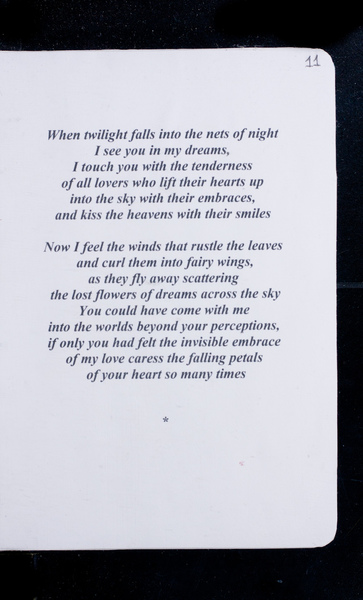 11
When twilight falls into the nets of night
I see you in my dreams,
I touch you with the tenderness
of all lovers who lift their hearts up
into the sky with their embraces,
and kiss the heavens with their smiles
Now I feel the winds that rustle the leaves
and curl them into fairy wings,
as they fly away scattering
the lost flowers of dreams across the sky
You could have come with me
into the worlds beyond your perceptions,
if only you had felt the invisible embrace
of my love caress the falling petals
of your heart so many times
*